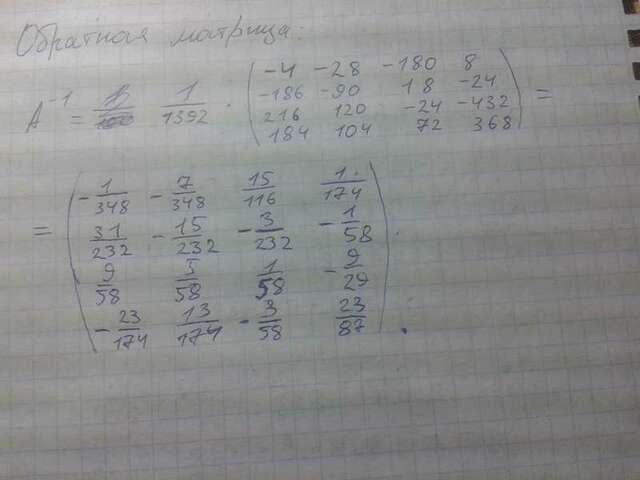 Обратная матрица:
-4 -28 -180 8
A^-1 = 1/1392 · ( -186 -90 18 -24 ) =
216 120 -24 -432
184 104 72 368
-1/348 -7/348 15/116 1/174
= 31/232 -15/232 -3/232 -1/58 .
9/58 5/58 1/58 -9/29
-23/174 13/174 -3/58 23/87 .